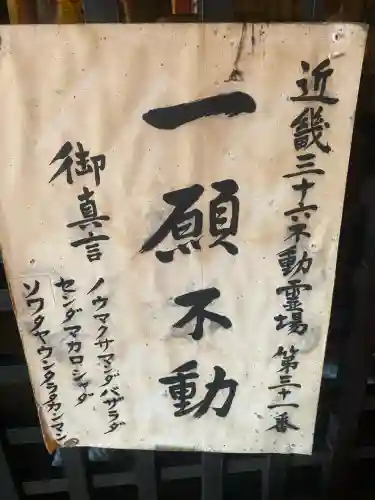 近畿三十六不動霊場 第三十一番
一願不動
御真言
ノウマクサマンダバザラダ
センダマカロシャダ
ソワタヤウンタラタカンマン